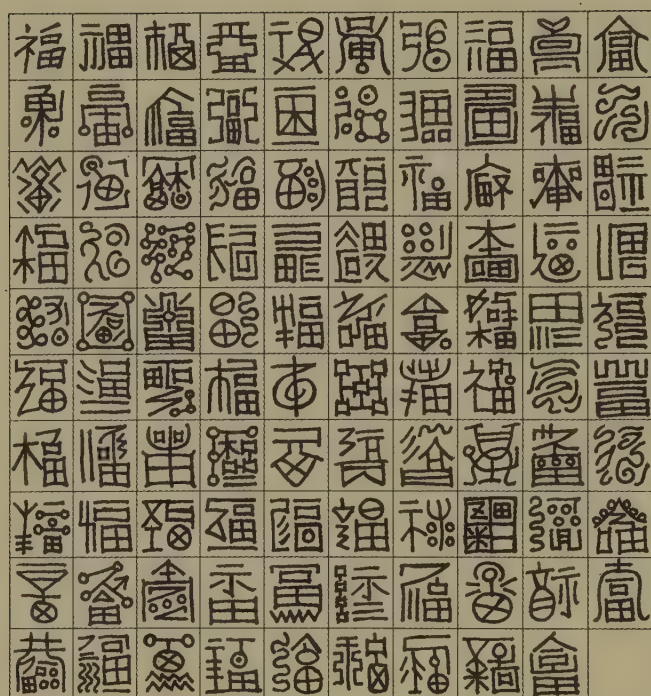 福福福福福福福福福福
福福福福福福福福福福
福福福福福福福福福福
福福福福福福福福福福
福福福福福福福福福福
福福福福福福福福福福
福福福福福福福福福福
福福福福福福福福福福
福福福福福福福福福福
福福福福福福福福福